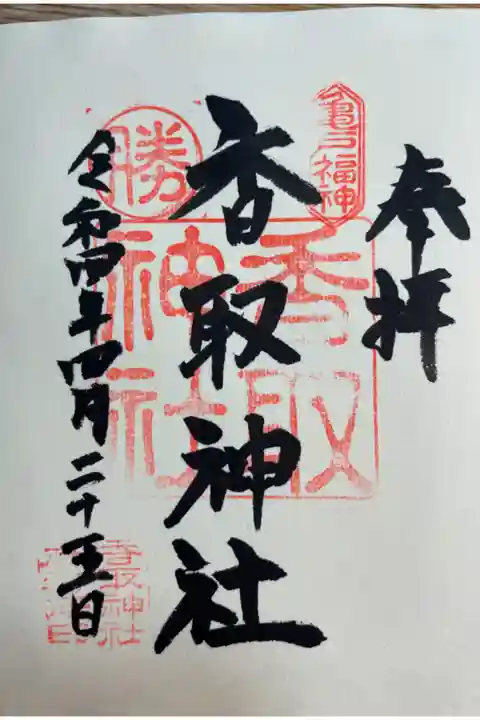 奉拝
香取神社
令和四年四月二十五日
亀戸福神
勝
香取
神社
香取神社